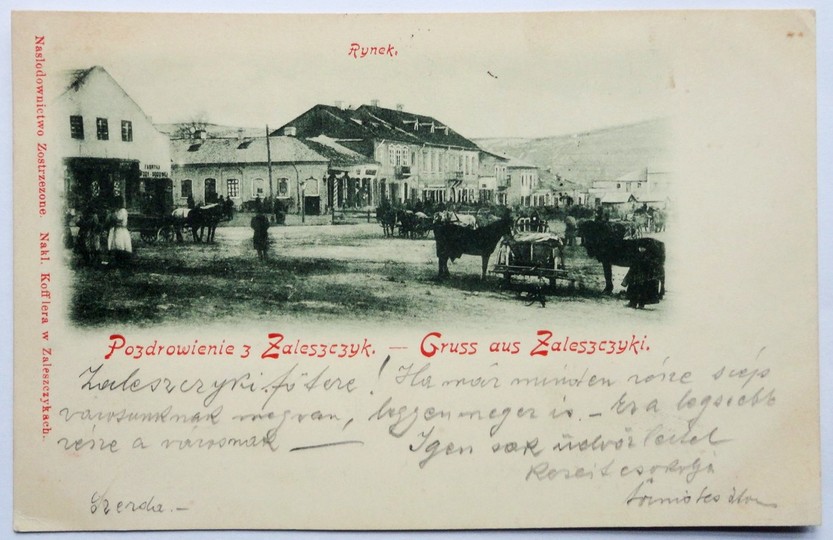 Rynek.
Nasłodownictwo Zostrzezone. Nakl. Kofflera w Zaleszczykach.
Pozdrowienie z Zaleszczyk. — Gruss aus Zaleszczyki.
Zaleszczyki főtere! Ha már minden része szép
városunknak megvan, legyen meg ez is. – Ez a legszebb
része a városnak — Igen sok üdvözlettel
kezeit csókolja
Szerda. –